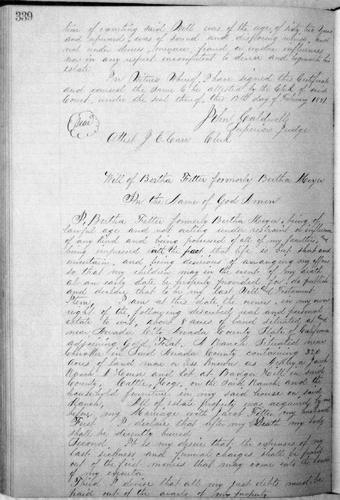 339
tion of executing said Will, was of the age of sixty two years
and upwards, was of sound and disposing mind, and
not under duress, menace, fraud or undue influences
nor in any respect incompetent to devise and bequeath his
estate.
In Witness Whereof, I have signed this Certificate
and caused the same to be attested by the Clerk of said
Court, under the seal thereof, this 19th day of February 1881
John Caldwell
Superior Judge
Seal
Attest J. E. Carr Clerk
Will of Bertha Fetter formerly Bertha Meyer
In the Name of God Amen
I, Bertha Fetter formerly Bertha Meyer, being of
lawful age and not acting under restraint or influence
of any kind and being possessed of all of my faculties,
being impressed with the fact that life is but short and
uncertain, and being desirous of arranging my affairs
so that my children may in the event of my death
at an early date be properly provided for do publish
and declare that to be my Last Will and Testament
I am at this date the owner, in my own
right of the following described real and personal
estate to wit, about 8 acres of land situated at and
near Nevada City Nevada County State of California
adjoining Gold Flat. A Ranch situated near
in said Nevada County containing 320
Acres of land more or less known as
Ranch. A House and Lot at in said
County, Cattle, Hogs, on the said Ranch and the
household furniture in my said house on said
Ranch. All of estate property was acquired by me
before my Marriage with Jacob Fetter, my husband
First I declare that after my Death my body
shall be decently buried.
Second. It is my desire that the expenses of my
last sickness and funeral charges shall be paid
out of the first moneys that may come into the hands
of my executor
Third I desire that all my just debts must be
paid out of the assets of my property